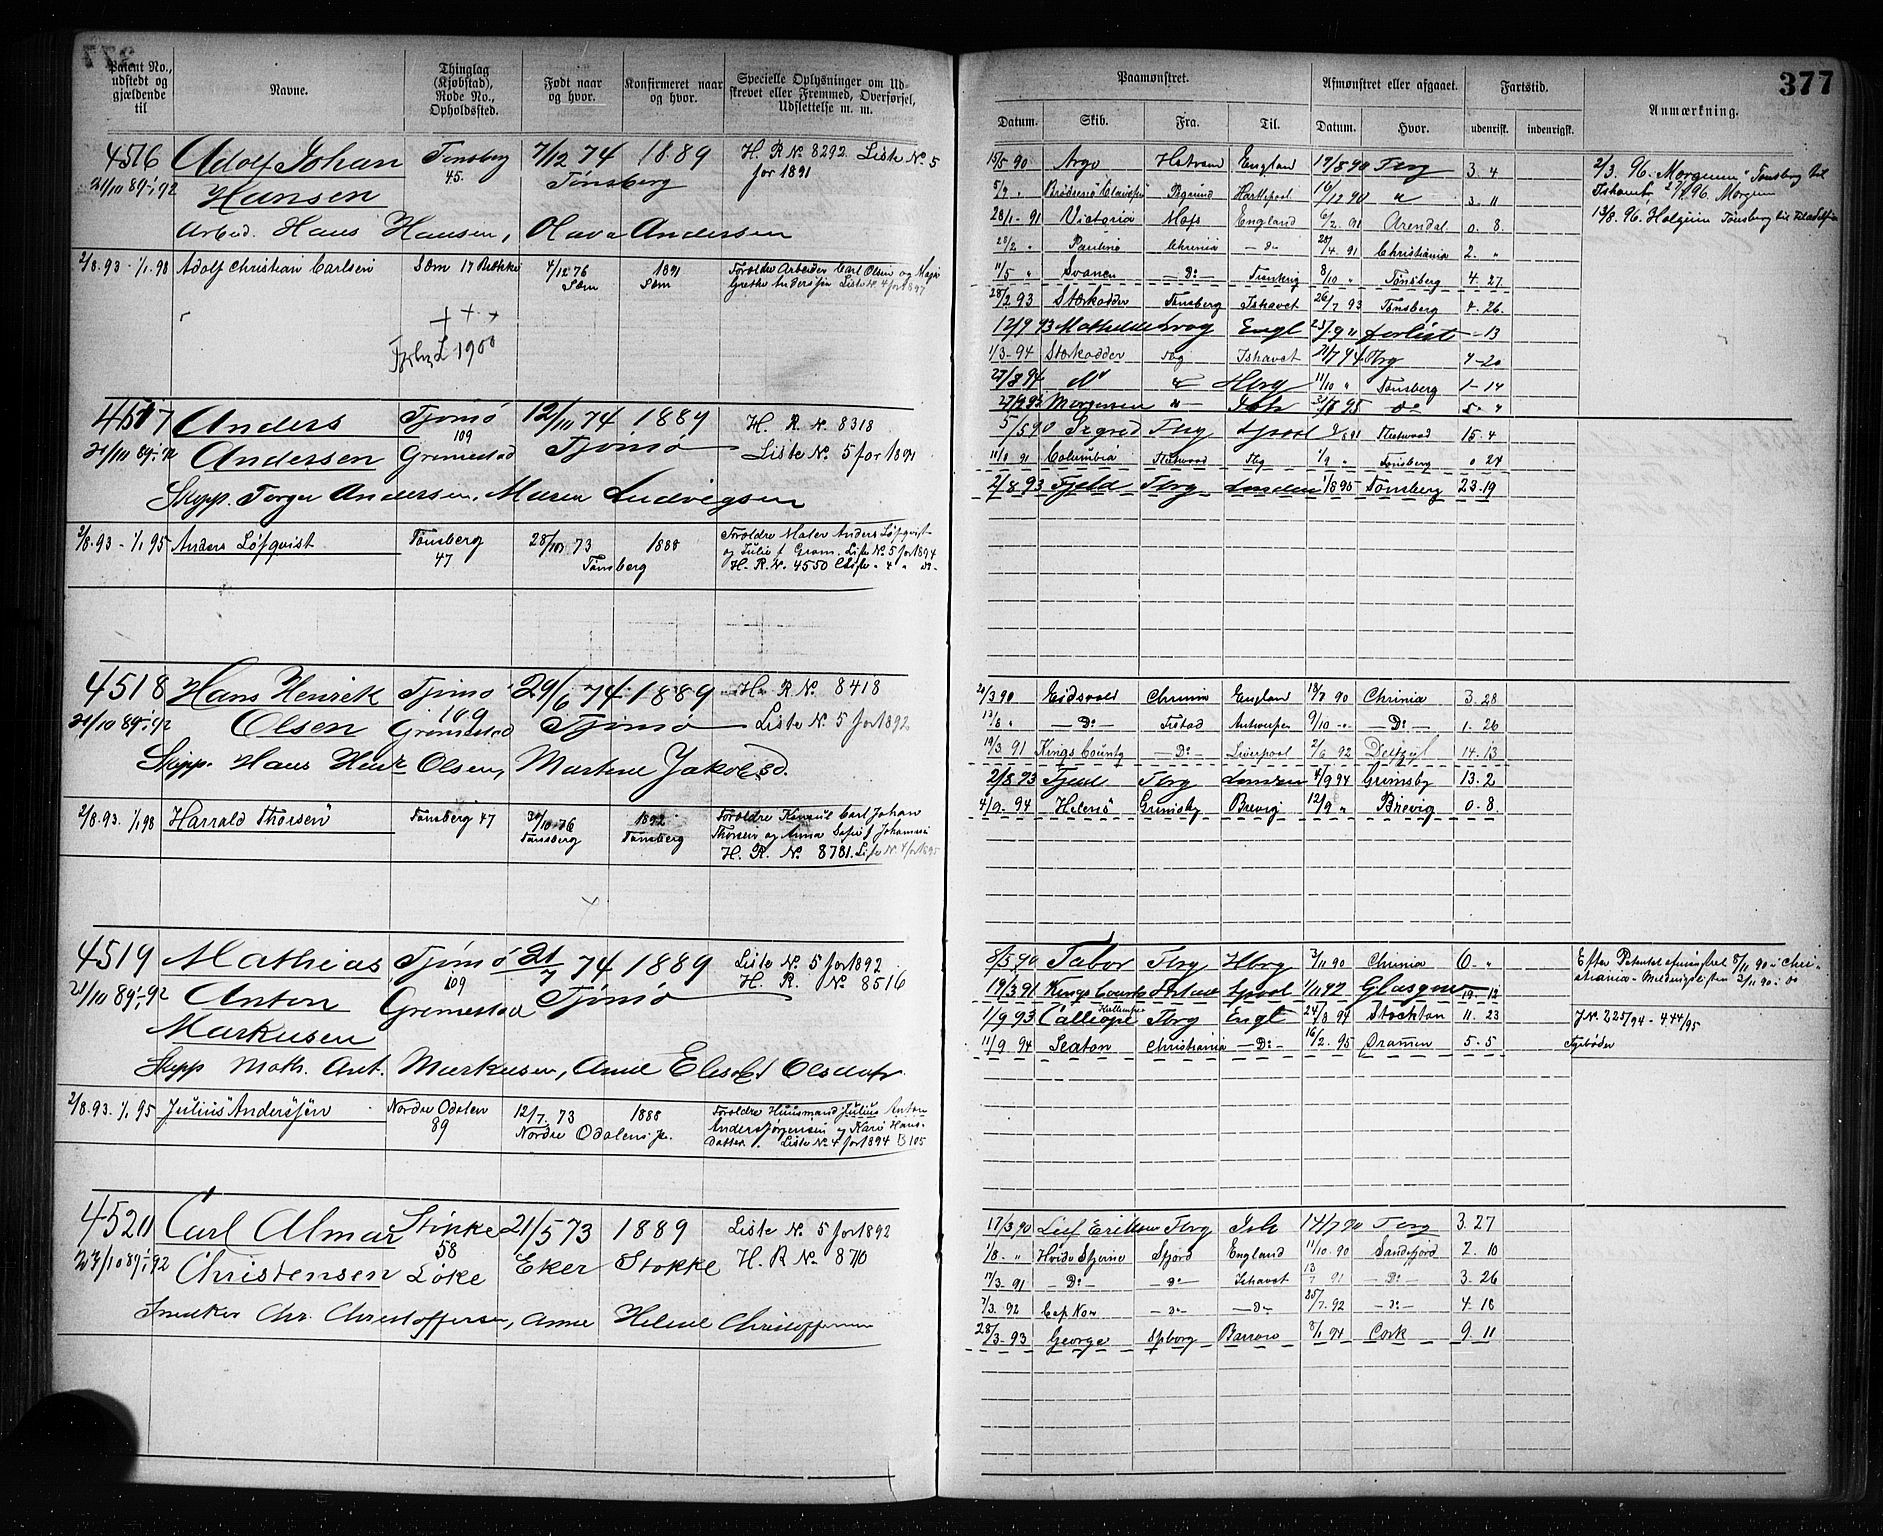 377
Patent No., udstedt og gjældende til
Navne.
Thinglag (Kjøbstad), Rode No., Opholdssted.
Født naar og hvor.
Konfirmeret naar og hvor.
Specielle Oplysninger om Udskrevet eller Fremmed, Overførsel, Udslettelse m. m.
4516 Adolf Johan Tønsberg 7/12 74 18.89 H. R No 8292 Liste No 5
21/10 89-1/1 92 Hansen 45. Tønsberg for 1891
Arbed. Hans Hansen, Olava Andersen
2/8.93 - 1/1.98 Adolf Christian Carlsen Sem 17 4/12 76 1891 Forældre Arbeider Carl Olsen og
Sem Sem Liste No 4 for 1897
+ + +
1900
4517 Anders Tjømø 12/11 74 1889 H. R No 8318
21/10 89-1/1 92 Andersen 109 Grimestad Tjømø Liste No 5 for 1891
Skipp. Torger Andersen, Maren Ludvigsen
2/8.93 - 1/1 95 Anders Löfqvist Tönsberg 28/10 73 1888 Forældre Maler Anders Löfqvist
47 Tønsberg og Julie f. Gram. Liste No 5 for 1894
H. R. No. 4550
4518 Hans Henrik Tjømø 29/6 74 1889 H. R No. 8418
21/10 89-1/1 92 Olsen 109 Grimestad Tjømø Liste No. 5 for 1892
Skipp. Hans Henr. Olsen, Martine Jakobsd.
2/8.93. 1/1 98 Harrald Thorsen Tønsberg 47 30/10 76 1892 Forældre Carl Johan
Tønsberg Tønsberg Thorsen og Anna Sofie f. Johannesen
H. R. No. 8781. Liste No 4 for 1895
4519 Mathias Tjømø 21/7 74 1889 Liste No. 5 for 1892
21/10 89-1/1 92 Anton 109 Grimestad Tjømø H. R. No 8516
Markusen
Skipp Math. Ant. Markusen, Anne Elisabet Olsdatr.
2/8.93. 1/1 95 Julius Anderssen Nordre Odalen 12/7. 73 1888 Forældre Huusmand Julius Anton
89 Nordre Odalens og Kari Hans-
datter. Liste No 4 for 1894
4520 Carl Almar Stokke 21/5 73 1889 Liste No. 5 for 1892
24/10 89-1/1 92 Christensen 58 Løke Eker Stokke H. R No 8710
Snedker Chr. Christoffersen, Anne Helene Christoffersen
Paamønstret.
Afmønstret eller afgaaet.
Fartstid.
Anmærkning.
Datum. Skib. Fra. Til. Datum. Hvor. udenrisk. indenrigsk.
15/5 90 Argo England 19/8 90 Tbrg 3. 4
Hartlepool 16/12 90 " 3. 11
28/1 - 91 Victoria Moss England 6/2 91 Arendal 0. 8.
28/2 " Pauline Chrania - d - 28/4 91 Christiania 2. "
11/5 " Svanen - Do - Frankrig 8/10 " Tønsberg 4. 27
28/2 93 Stærkodder Tønsberg Ishavet 26/7 93 Tønsberg 4. 26.
12/9 93 Mathilde Engl forlist - 13
1/3 - 94 Stærkodder Tbg Ishavet 21/7 94 Tbrg 4 - 20
27/8 94 " Hbrg 11/10 " Tønsberg 1 - 14
Morgenen " Ish 31/8 95 do 5. 4
2/3. 96. Morgenen Tønsberg til
Ishavet, 27/7 96. Morgen
13/8. 96. Holgein Tønsberg til
5/5 90 Sigrid Tbrg Lpool Fleetwood 15. 4
11/8 91 Columbia Fleetwood Tbg 1/9 " Tønsberg 0 24
2/8 93 Fjeld Tbrg London 1/8 95 Tønsberg 23. 19
21/3 90 Eidsvold Chrania England 18/7 90 Chrania 3. 28
13/8 " - Do - Frstad Antwerpen 9/10 - - Do - 1. 26
19/3 91 Kings County - Do - Liverpool 2/6 92 Delfzyl 14. 13
2/8 93 Fjeld Tbrg London 4/9 94 Grimsby 13. 2
4/9. 94 Helenø Grimsby Brevig 12/9 " Brevig 0. 8.
8/5 90 Tabor Tbrg Hbrg 3/11 90 Chrania 6. "
19/3 91 Kings County Frstad Lpool 1/11 92 Glasgow 19 12
1/9 93 Calliope Tbrg Engl 24/8 94 Stockton 11. 23
11/9 94 Seaton Christiania - Do - 16/2. 95 Drammen 5. 5
Efter 8/11 90 i Chri-
stiania
J No 225/94 - 444/95
17/3 90 Leif Erikson Tbrg Ish 14/7 90 Tbrg 3. 27
1/8. " Hvide Stjerne Sfjord England 11/10. 90 Sandefjord 2. 10
17/3. 91 - Do - - Do - Ishavet 13/7 91 - Do - 3. 26
7/3. 92 Cap Nor - Do - - Do - 25/7. 92 - Do - 4. 18
28/3 - 93 George Barrow 8/1 94 Cork 9. 11